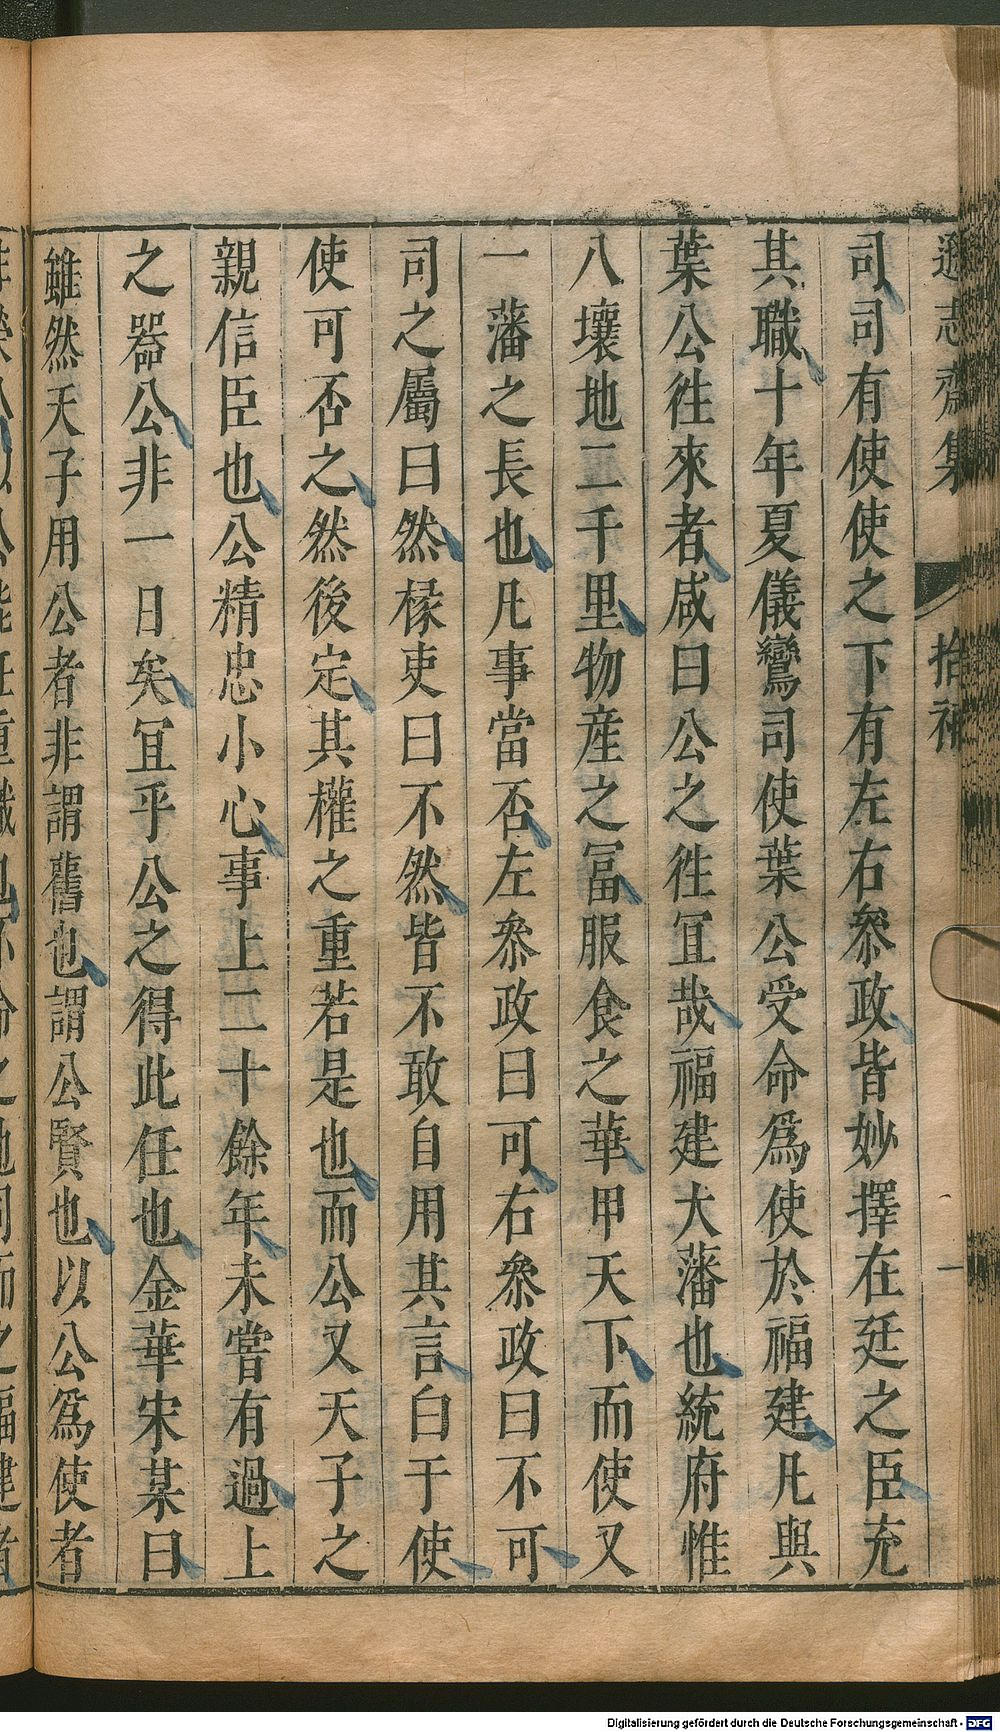 遜志齋集 拾補 一
司司有使使之下有左右叅政皆妙擇在廷之臣充
其職十年夏儀鸞司使葉公受命爲使於福建凡與
葉公徃來者咸曰公之徃冝哉福建大藩也統府惟
八壤地二千里物産之冨服食之華甲天下而使又
一藩之長也凡事當否左叅政曰可右叅政曰不可
司之屬曰然椽吏曰不然皆不敢自用其言白于使
使可否之然後定其權之重若是也而公又天子之
親信臣也公精忠小心事上二十餘年未嘗有過上
之器公非一日矣冝乎公之得此任也金華宋某曰
雖然天子用公者非謂舊也謂公賢也以公爲使者
Digitalisierung gefördert durch die Deutsche Forschungsgemeinschaft - DFG